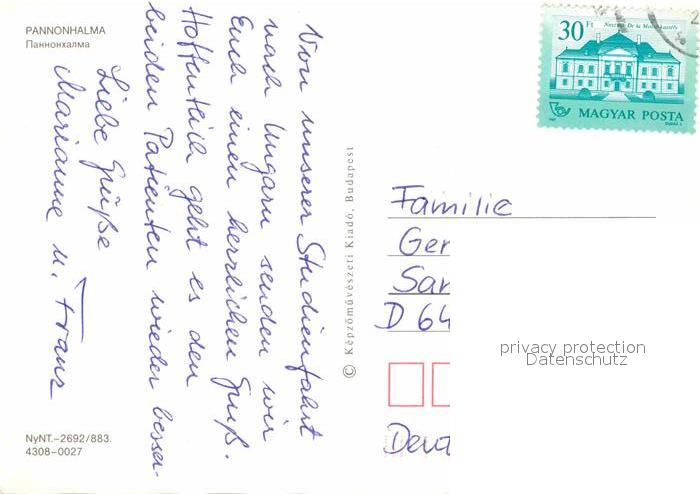 PANNONHALMA
Паннонхалма
Von unserer Studienfahrt
nach Ungarn senden wir
Euch einen herzlichen Gruß.
Hoffentlich geht es den
beiden Patienten wieder besser.
Liebe Grüße
Marianne u. Franz
NyNT.–2692/883.
4308–0027
© Képzőművészeti Kiadó, Budapest
30 Ft
MAGYAR POSTA
Familie
Ger
Sar
D 64
privacy protection
Datenschutz
Deut